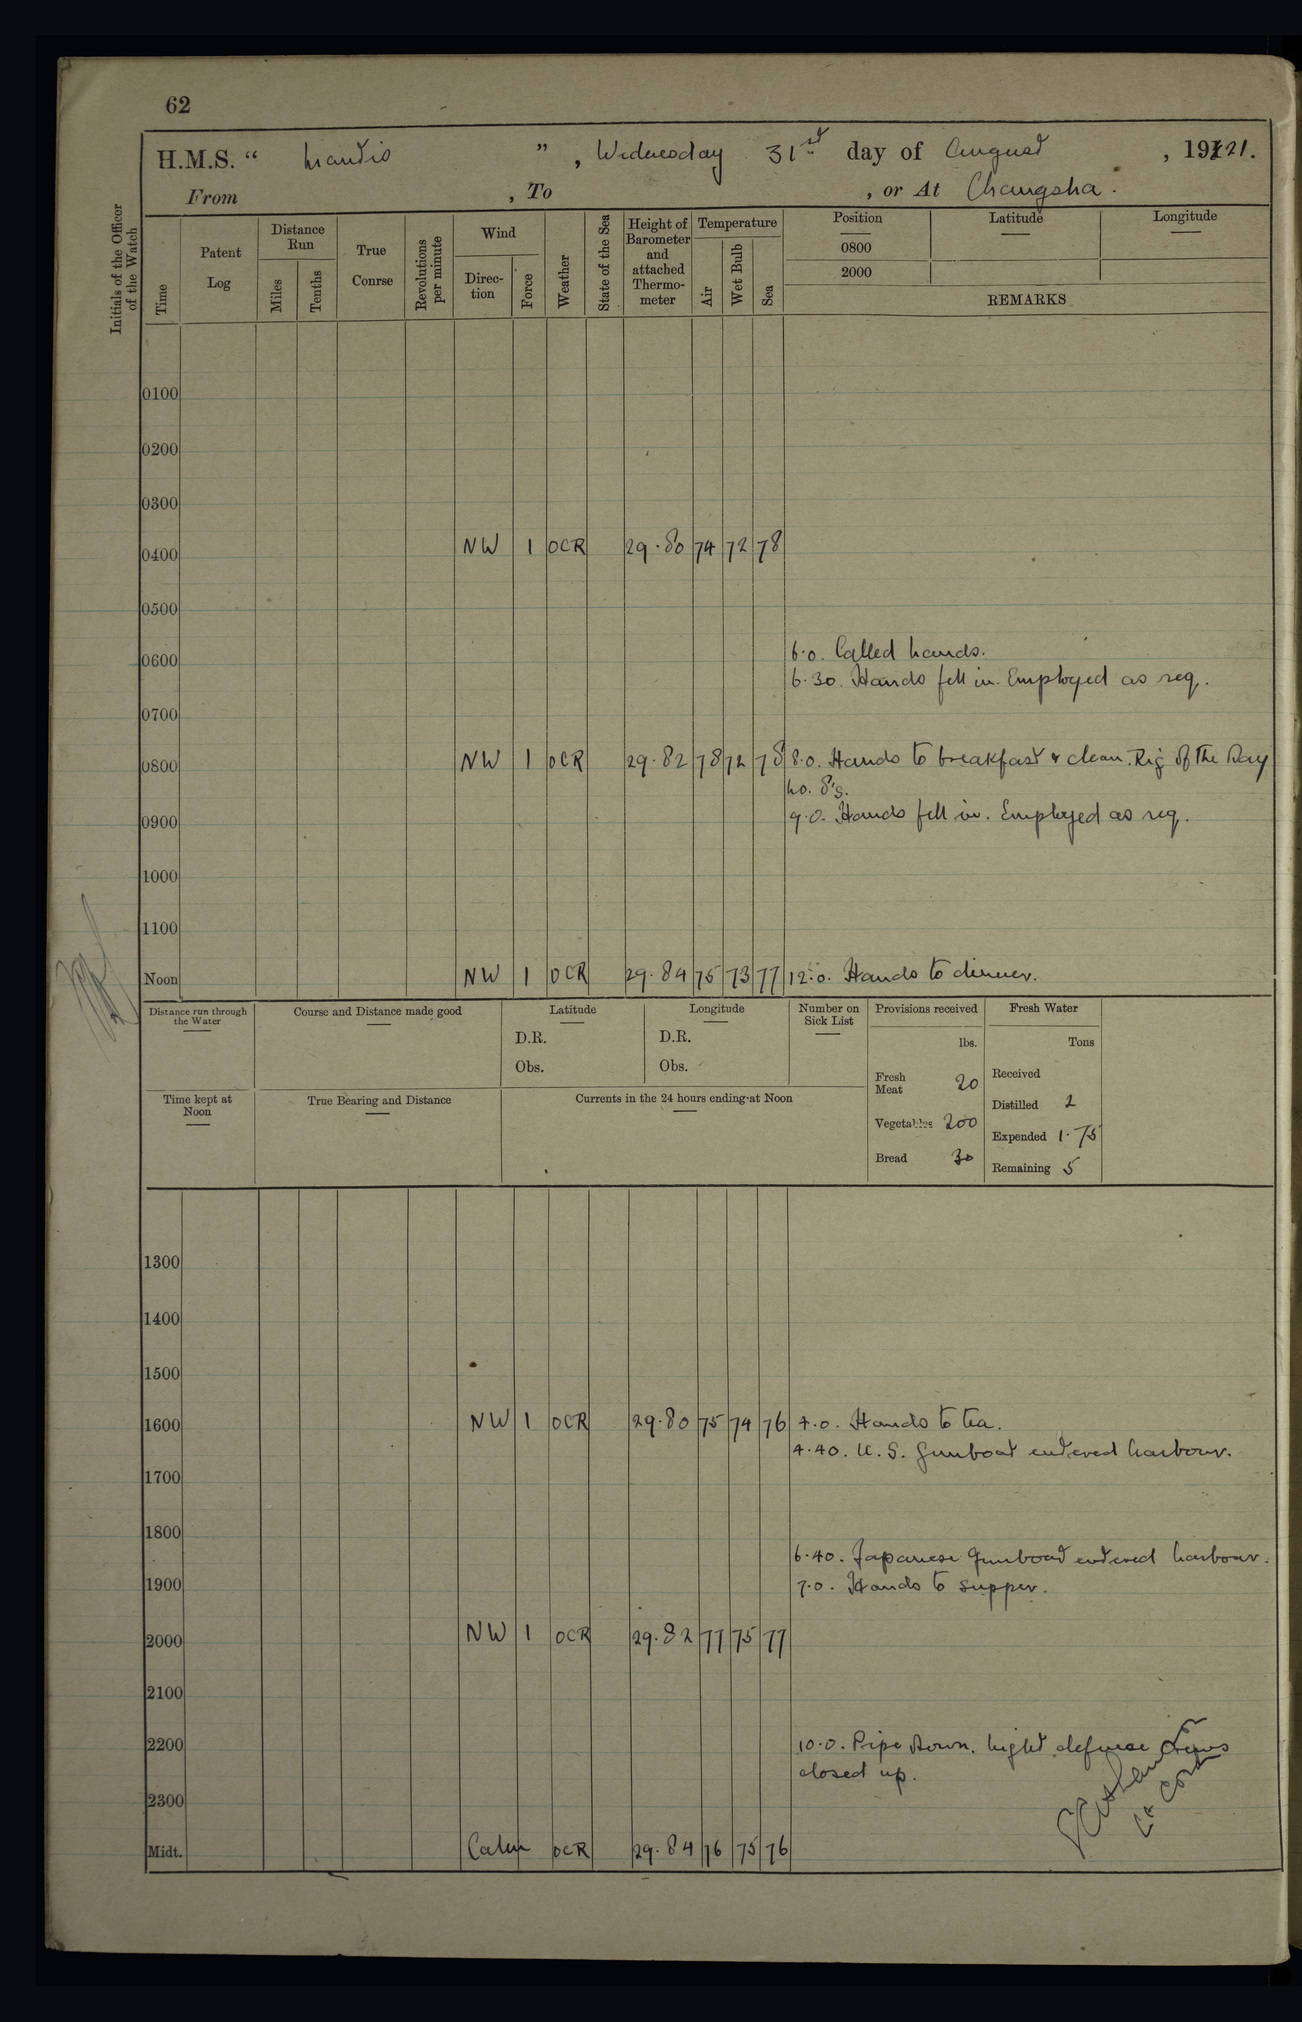 62
H.M.S. “ Mantis ” , Wednesday 31st day of August , 1921.
From , To , or At Changsha.
Initials of the Officer of the Watch
Time
Patent Log
Distance Run
Miles
Tenths
True Course
Revolutions per minute
Wind
Direc-tion
Force
Weather
State of the Sea
Height of Barometer and attached Thermo-meter
Temperature
Air
Wet Bulb
Sea
Position Latitude Longitude
0800
2000
REMARKS
0100
0200
0300
0400 NW 1 OCR 29.80 74 72 78
0500
0600 6.0. Called hands.
6.30. Hands fell in. Employed as req.
0700
0800 NW 1 OCR 29.82 78 72 78 8.0. Hands to breakfast & clean. Rig of the Day
No. 8's.
0900 9.0. Hands fell in. Employed as req.
1000
1100
Noon NW 1 OCR 29.84 75 73 77 12.0. Hands to dinner.
Distance run through the Water
Course and Distance made good
Latitude
D.R.
Obs.
Longitude
D.R.
Obs.
Number on Sick List
Provisions received
lbs.
Fresh Meat 20
Vegetables 200
Bread 30
Fresh Water
Tons
Received
Distilled 2
Expended 1.75
Remaining 5
Time kept at Noon
True Bearing and Distance
Currents in the 24 hours ending at Noon
1300
1400
1500
1600 NW 1 OCR 29.80 75 74 76 4.0. Hands to tea.
4.40. U.S. Gunboat entered harbour.
1700
1800
6.40. Japanese Gunboat entered harbour.
1900 7.0. Hands to supper.
2000 NW 1 OCR 29.82 77 75 77
2100
2200 10.0. Pipe down. Night defence crews
closed up.
2300
Lt Cdr
Midt. Calm OCR 29.84 76 75 76